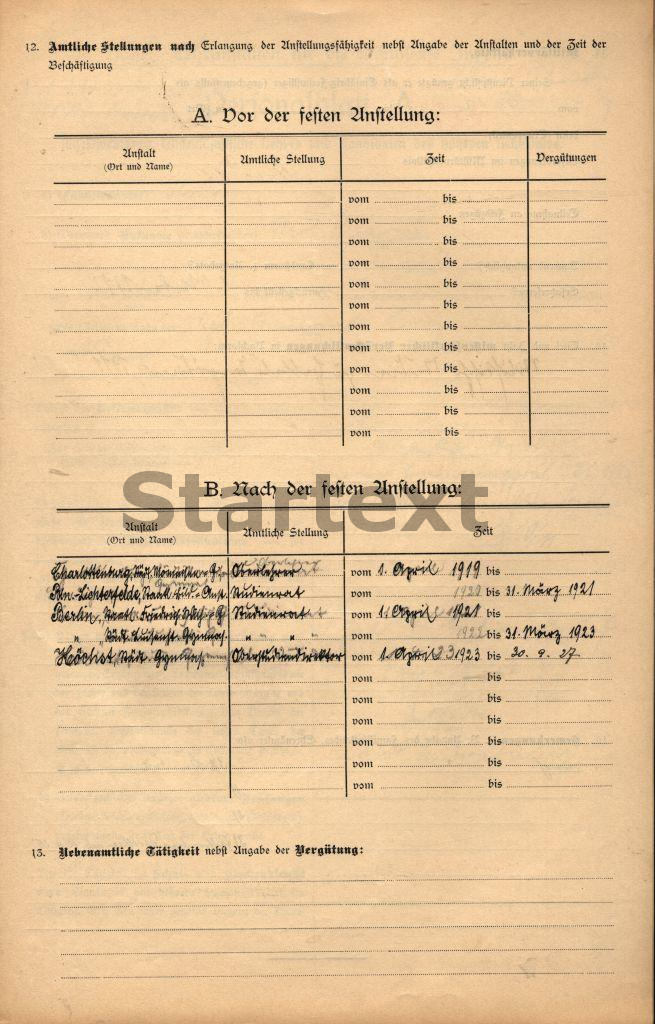 12. Amtliche Stellungen nach Erlangung der Anstellungsfähigkeit nebst Angabe der Anstalten und der Zeit der
Beschäftigung
A. Vor der festen Anstellung:
Anstalt Amtliche Stellung Zeit Vergütungen
(Ort und Name)
vom bis
vom bis
vom bis
vom bis
vom bis
vom bis
vom bis
vom bis
vom bis
vom bis
vom bis
vom bis
Startext
B. Nach der festen Anstellung:
Anstalt Amtliche Stellung Zeit
(Ort und Name)
Charlottenburg, Städt. Oberlehrer vom 1. April 1919 bis
Bln.-Lichterfelde, Staatl. Studienrat vom 1920 bis 31. März 1921
Berlin, Staatl. Friedrich Studienrat vom 1. April 1921 bis
" Städt. Luisenst. Gymnas. " " " vom 1922 bis 31. März 1923
Höchst, Städt. Gymnas. Oberstudiendirektor vom 1 April 1923 bis 30. 9. 27
vom bis
vom bis
vom bis
vom bis
vom bis
vom bis
13. Nebenamtliche Tätigkeit nebst Angabe der Vergütung: